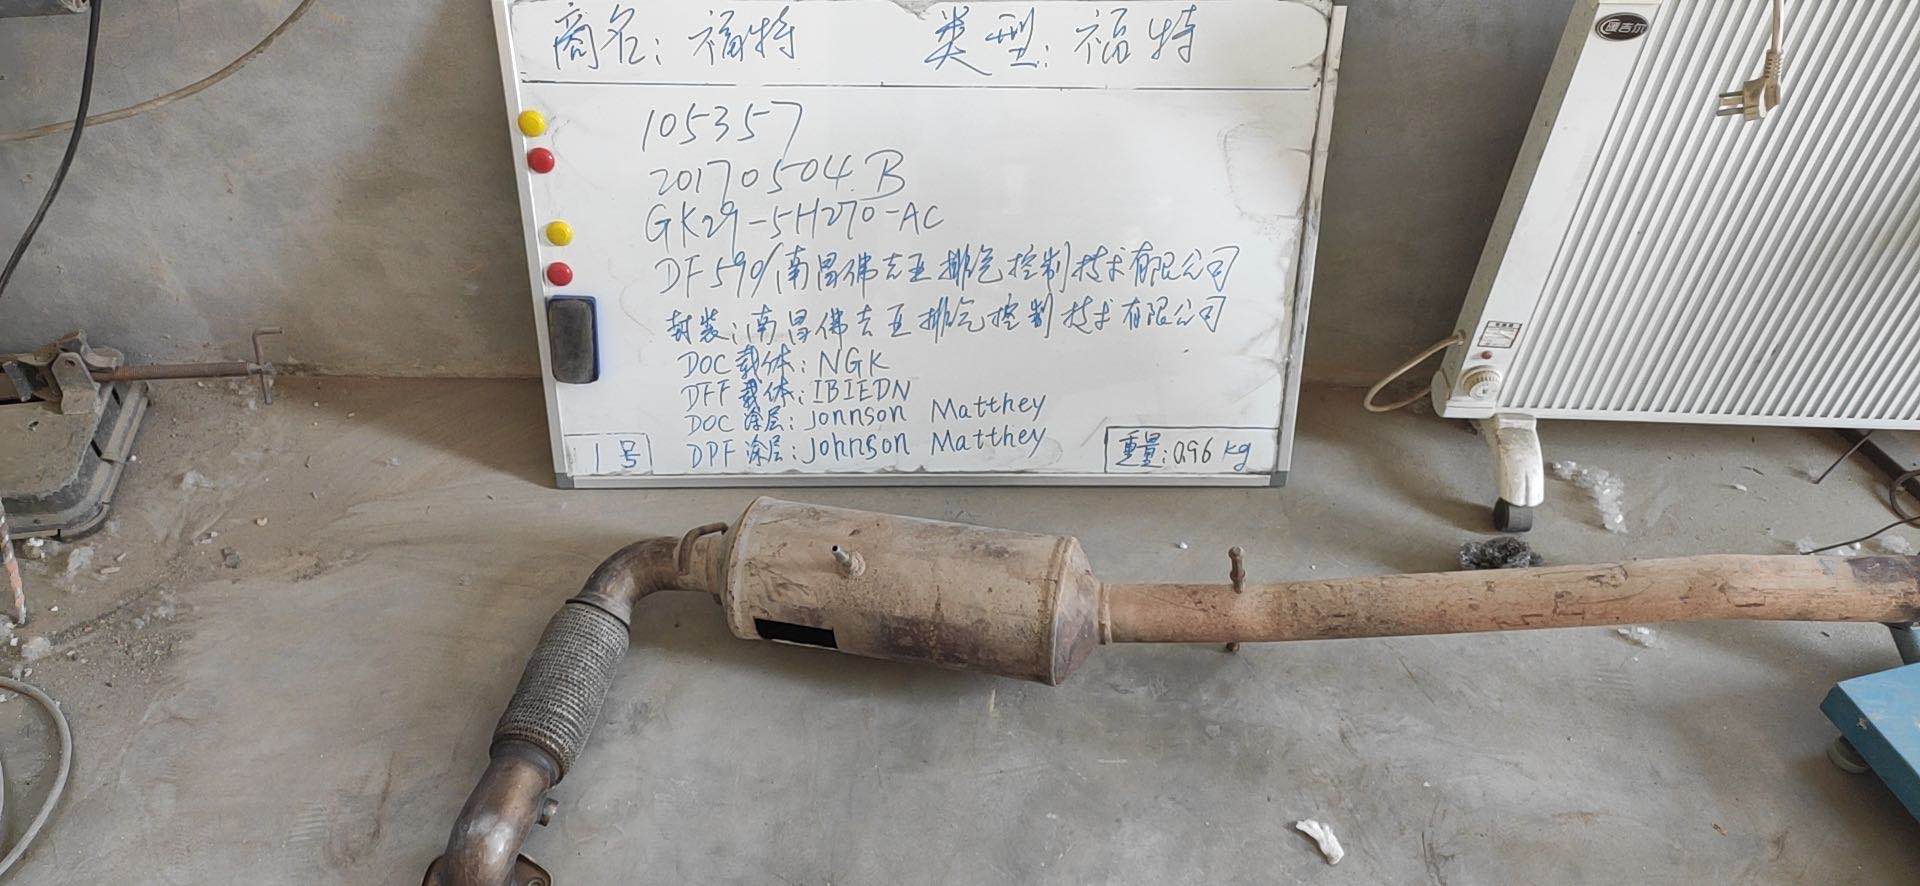 商名：福特 类型：福特
105357
20170504.B
GK29-5H270-AC
DF590/南昌佛吉亚排气控制技术有限公司
封装：南昌佛吉亚排气控制技术有限公司
DOC载体：NGK
DFF载体：IBIEDN
DOC涂层：Jonnson Matthey
DPF涂层：Johnson Matthey
1号 重量：0.96kg